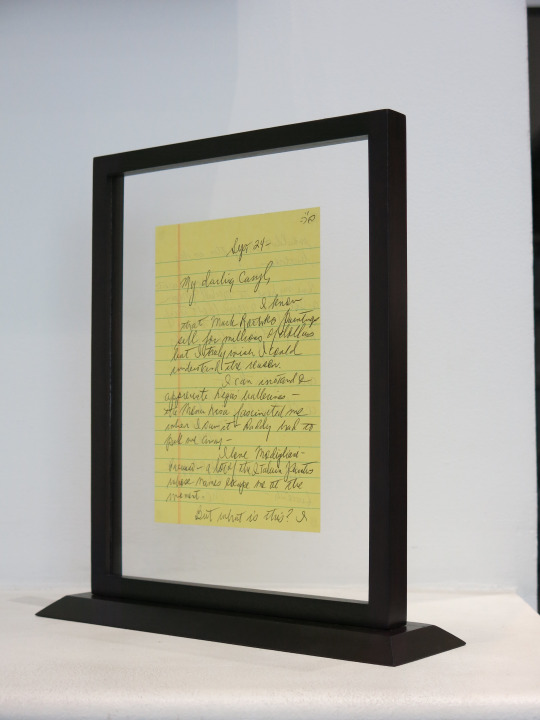 Sept 24 -
My darling Caryl,
I know
that Mark Rothko's paintings
sell for millions of dollars
but I truly wish I could
understand the reason.
I can instead
appreciate Degas ballerinas -
the Mona Lisa fascinated me
when I saw it - Buddy had to
pull me away -
I love Modigliani -
- a lot of the Italian painters
whose names escape me at the
moment.
But what is this? I